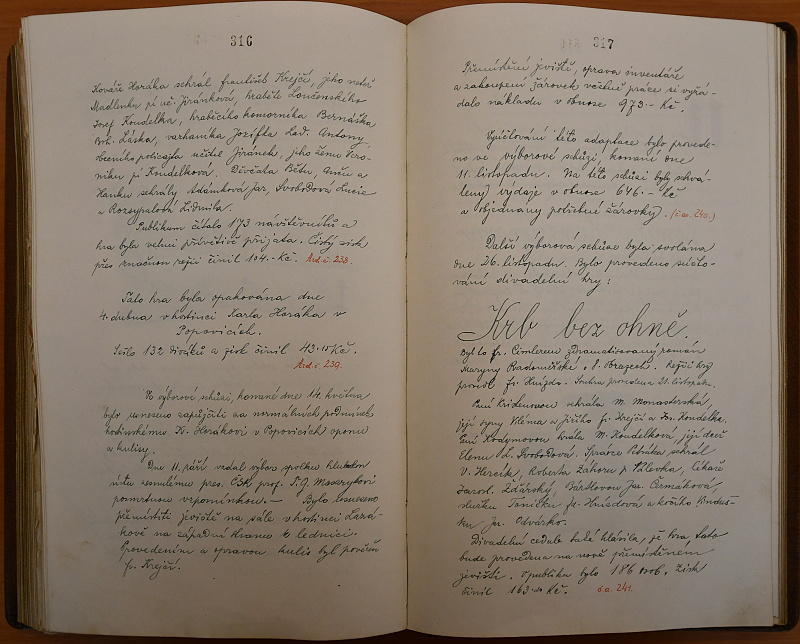 316
Kováře Horáka sehrál František Krejčí, jeho neteř
Madlenku pí uč. Jiránková, hraběte Lončenského
Josef Koudelka, hraběcího komorníka Bernáška
Boh. Láska, varhaníka Jozífka Lad. Antony,
obecního policajta učitel Jiránek, jeho ženu Vero-
niku pí Koudelková. Děvčata Bětu, Anču a
Hanku sehrály Adamková Jar., Svobodová Lucie
a Rozsypalová Lidmila.
Publikum čítalo 173 návštěvníků a
hra byla velmi přívětivě přijata. Čistý zisk
přes značnou režii činil 104.- Kč. Ard. č. 238.
Tato hra byla opakována dne
4. dubna v hostinci Karla Horáka v
Popovicích.
Sešlo 132 diváků a zisk činil 43.15 Kč.
Ard. č. 239.
Ve výborové schůzi, konané dne 14. května
bylo usneseno zapůjčiti za normálních podmínek
hostinskému K. Horákovi v Popovicích oponu
a kulisy.
Dne 11. září vzdal výbor spolku hlubokou
úctu zesnulému pres. ČSR prof. T. G. Masarykovi
pomrtnou vzpomínkou. — Bylo usneseno
přemístiti jeviště na sále v hostinci Lazá-
kově na západní stranu k lednici.
Provedením a opravou kulis byl pověřen
fr. Krejčí.
317
Přemístění jeviště, oprava inventáře
a zakoupení žárovek včetně práce si vyžá-
dalo nákladu v obnose 973.- Kč.
Vyúčtování této adaptace bylo provede-
no ve výborové schůzi, konané dne
11. listopadu. Na této schůzi byly schvá-
leny výdaje v obnose 646.- Kč
a objednány potřebné žárovky. (č. a. 240.)
Další výborová schůze byla svolána
dne 26. listopadu. Bylo provedeno súčto-
vání divadelní hry:
Krb bez ohně.
Byl to fr. Cimlerem zdramatisovaný román
Maryny Radoměrské o 8. obrazech. Režii hry
provedl fr. Hnízdo. Souhra provedena 21. listopadu.
Paní Kridenovou sehrála M. Monasterská,
její syny Viléma a Jiřího fr. Krejčí a Jos. Koudelka.
Paní Hodymovou hrála M. Koudelková, její dceř
Elenu L. Svobodová. Správce Petráka sehrál
V. Hercík, Roberta Záhoru p. Hlevka, lékaře
Jarosl. Žďárský, Bártlovou Jar. Čermáková,
sluhu Toníčka fr. Hnízdová a kočího Bindus-
ku Jar. Odvárko.
Divadelní cedule také hlásila, že hra tato
bude provedena na nově přemístěném
jevišti. Publika bylo 186 osob. Zisk
činil 163.- Kč. č. a. 241.